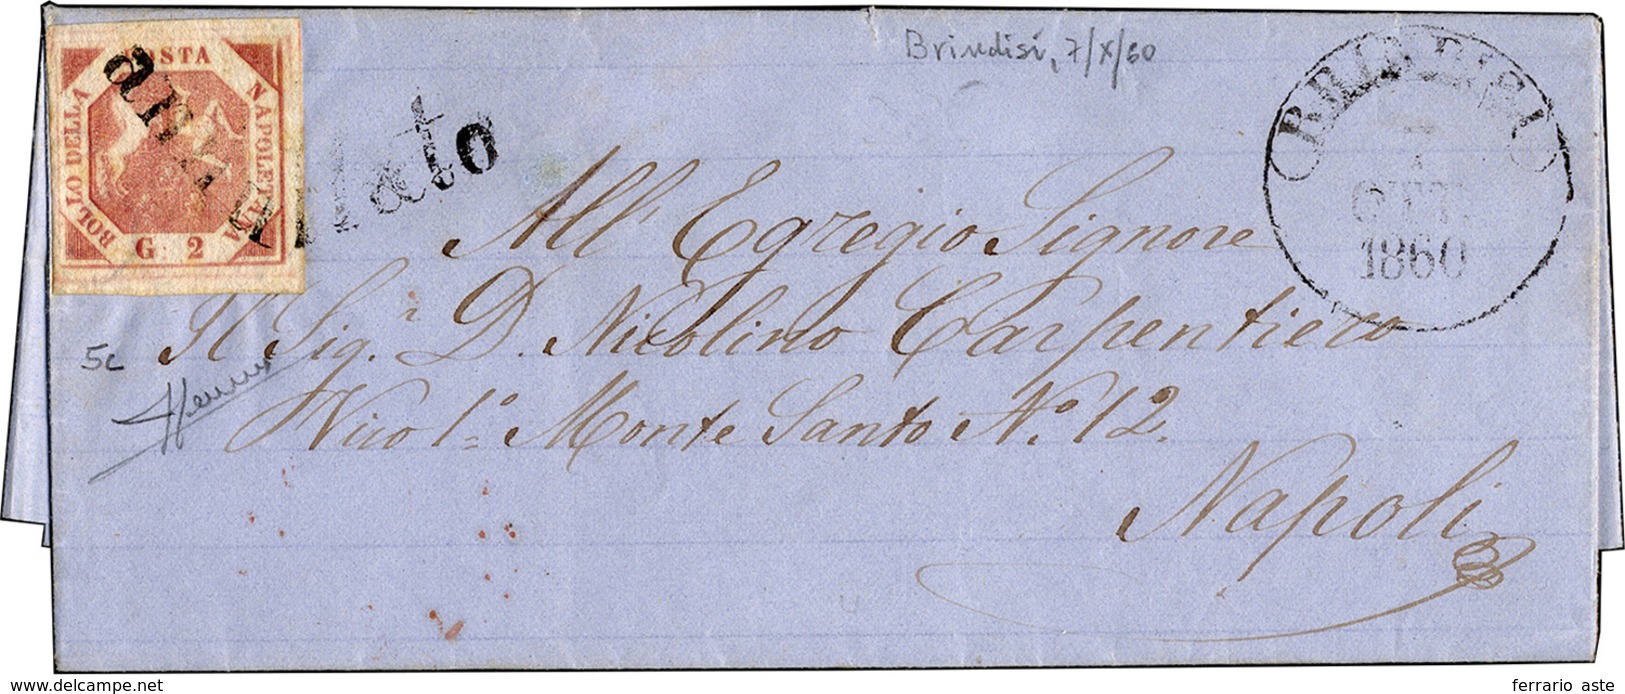 BOLLO DELLA POSTA NAPOLETANA
G. 2
annullato
Brindisi, 7/X/60
BRINDISI
OTT.
1860
All' Egregio Signore
Il Sig.r D. Nicolino Carpentiero
Vico 1º Monte Santo Nº 12.
Napoli
5c
www.delcampe.net
ferrario aste